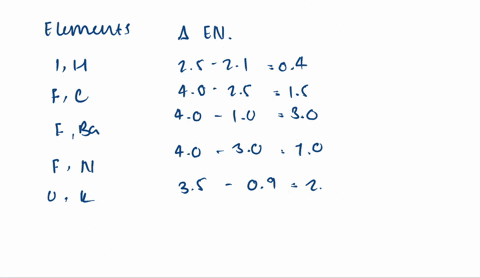 Elements Δ EN.
I, H 2.5 - 2.1 = 0.4
F, C 4.0 - 2.5 = 1.5
F, Ba 4.0 - 1.0 = 3.0
F, N 4.0 - 3.0 = 1.0
O, K 3.5 - 0.9 = 2.